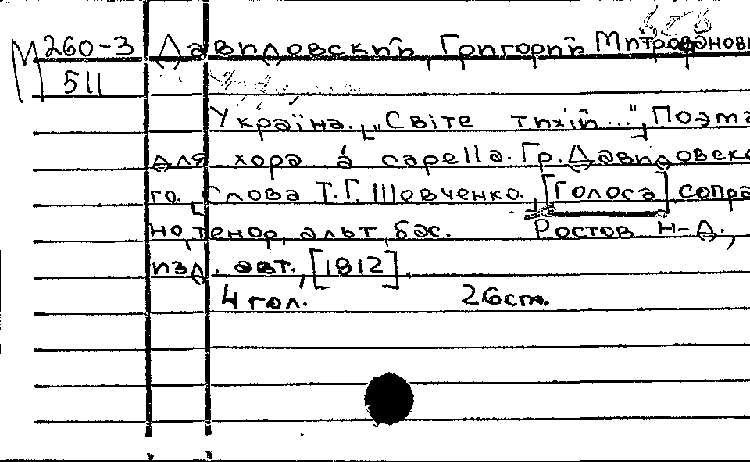 М 260-3 Давидовский, Григорий Митрофанови
511
Україна. „Світе тихій...", Поэма
для хора à capella. Гр. Давидовско
го. Слова Т. Г. Шевченко. [Голоса] сопра
но, тенор, альт, бас. Ростов н-Д.,
изд. авт., [1912].
4 гол. 26 см.